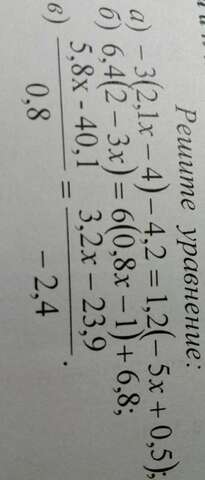 Решите уравнение:
а) − 3(2,1x − 4) − 4,2 = 1,2(− 5x + 0,5);
б) 6,4(2 − 3x) = 6(0,8x − 1) + 6,8;
в) (5,8x - 40,1)/0,8 = (3,2x − 23,9)/(− 2,4).